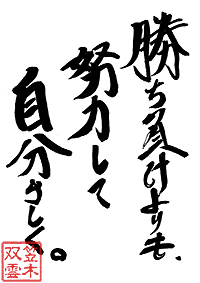 勝ち負けよりも、
努力して
自分らしく。
笠木
双雲